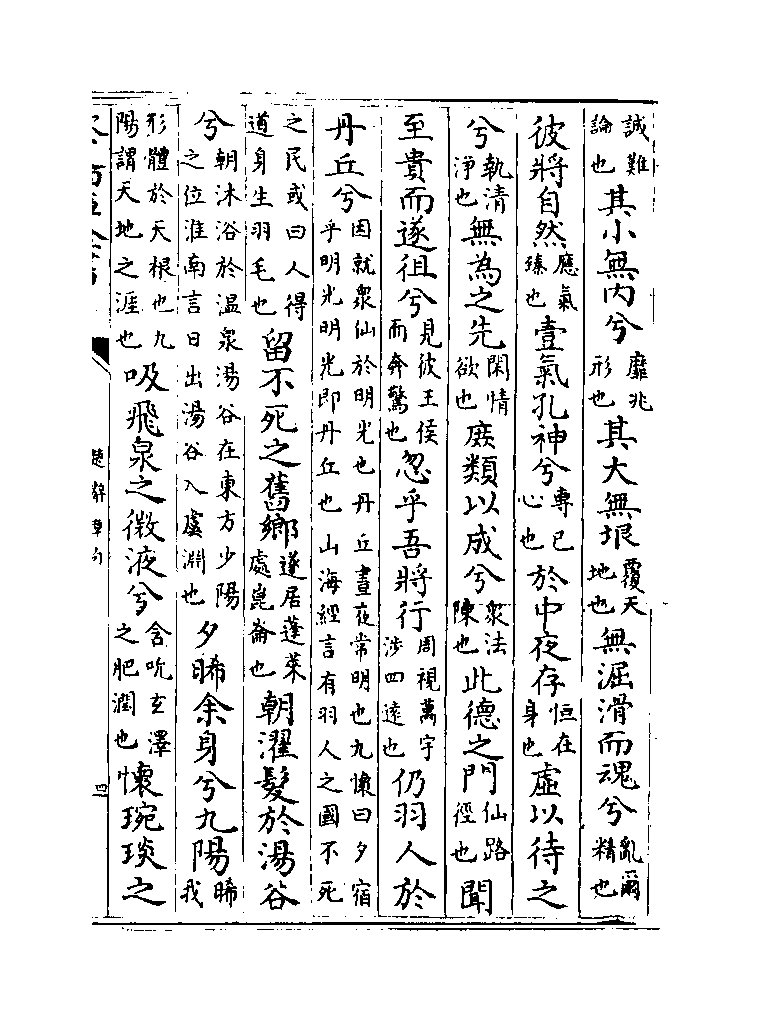 誠難論也其小無内兮靡兆形也其大無垠覆天地也無淈滑而魂兮亂爾精也
彼將自然應氣臻也壹氣孔神兮專已心也於中夜存恒在身也虛以待之
兮執清淨也無為之先閑情欲也庶類以成兮衆法陳也此德之門仙路徑也聞
至貴而遂徂兮見彼王侯而奔驚也忽乎吾將行周視萬宇涉四遠也仍羽人於
丹丘兮因就衆仙於明光也丹丘晝夜常明也九懷曰夕宿乎明光明光即丹丘也山海經言有羽人之國不死
之民或曰人得道身生羽毛也留不死之舊鄉遂居蓬萊處崑崙也朝濯髮於湯谷
兮朝沐浴於温泉湯谷在東方少陽之位淮南言日出湯谷入虞淵也夕晞余身兮九陽晞我
形體於天根也九陽謂天地之涯也吸飛泉之微液兮含吮玄澤之肥潤也懷琬琰之
楚辭章句
四